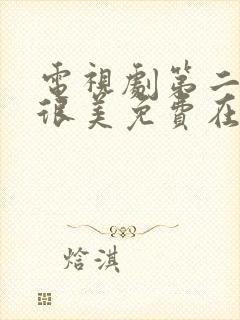 電視劇第二
很美免費在
焓淇